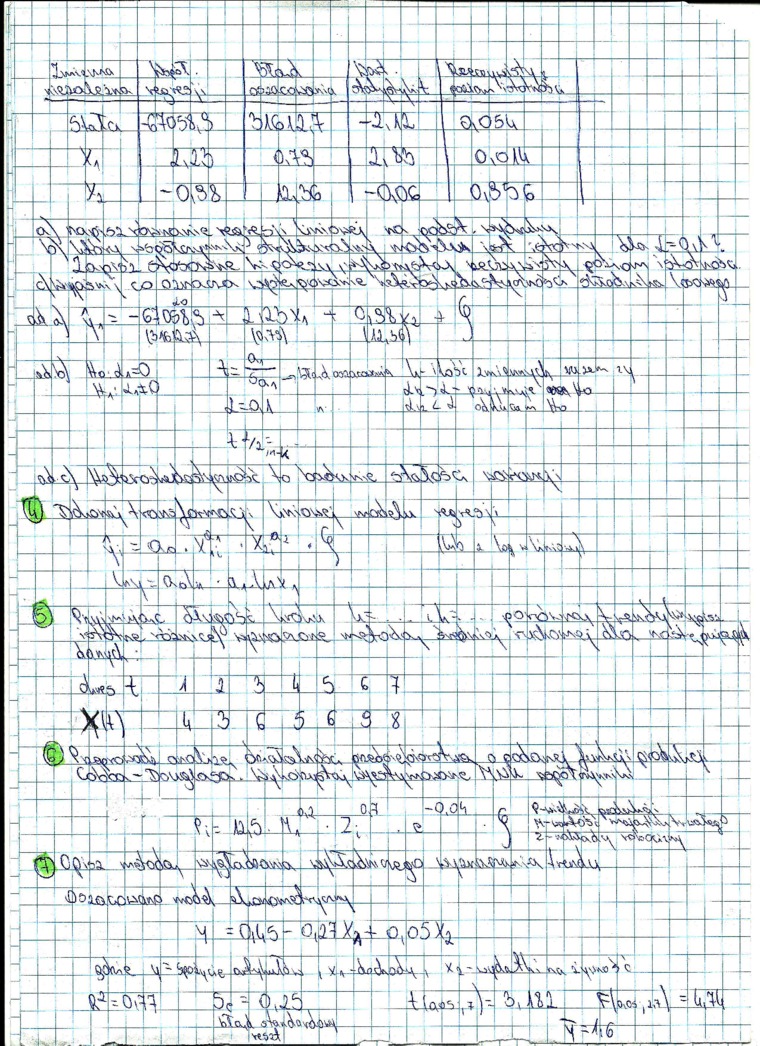 Zmienna niezależna | Współ. regresji | Błąd oszacowania | Wart. statystyki t | Rzeczywisty poziom istotności
Stała -67058,9 31612,7 -2,12 0,054
X1 2,23 0,79 2,83 0,014
X2 -0,98 12,36 -0,06 0,956
a) napisz równanie regresji liniowej na podst. wydruku
b) który współczynnik strukturalny modelu jest istotny dla α=0,1?
Zapisz stosowne hipotezy, wykorzystaj rzeczywisty poziom istotności
c) wyjaśnij, co oznacza występowanie heteroskedastyczności składnika losowego
ad a) ŷ1 = -67058,9 + 2,23x1 + 0,98x2 + ξ
(31612,7) (0,79) (12,36)
ad b) H0: α1=0 t= a1/Sa1 → błąd oszacowania k-ilość zmiennych razem z y
H1: α1≠0 > α - przyjmuję H0
α=0,1 n... < α odrzucam H0
t α/2 = , n-k
ad. c) Heteroskedastyczność to badanie stałości wariancji
4 Dokonaj transformacji liniowej modelu regresji
ŷi = a0 · X1i^a1 · X2i^a2 · ξ (lub z log w liniowy)
lny = a0ln · a1·lnx1
5 Przyjmując długość kroku k=... i k=... porównaj trendy (wypisz
istotne różnice) wyznaczone metodą średniej ruchomej dla następujących
danych:
okres t 1 2 3 4 5 6 7
X(t) 4 3 6 5 6 9 8
6 Przeprowadź analizę działalności przedsiębiorstwa o podanej funkcji produkcji
Cobba-Douglasa. Wykorzystaj wyestymowane MNK współczynniki
Pi = 12,5 · M1^0,2 · Zi^0,7 · e^-0,04 · ξ
P-wielkość produkcji
M-wartość majątku trwałego
Z-nakłady robocizny
7 Opisz metodę wygładzania wykładniczego wyznaczania trendu
Oszacowano model ekonometryczny
y = 0,45 - 0,27X1 + 0,05X2
gdzie y=spożycie artykułów, x1-dochody, x2-wydatki na żywność
R²=0,77 Se = 0,25 t(0,05,7) = 3,182 F(0,05,2,7) = 4,74
błąd standardowy
reszt
ȳ=1,6